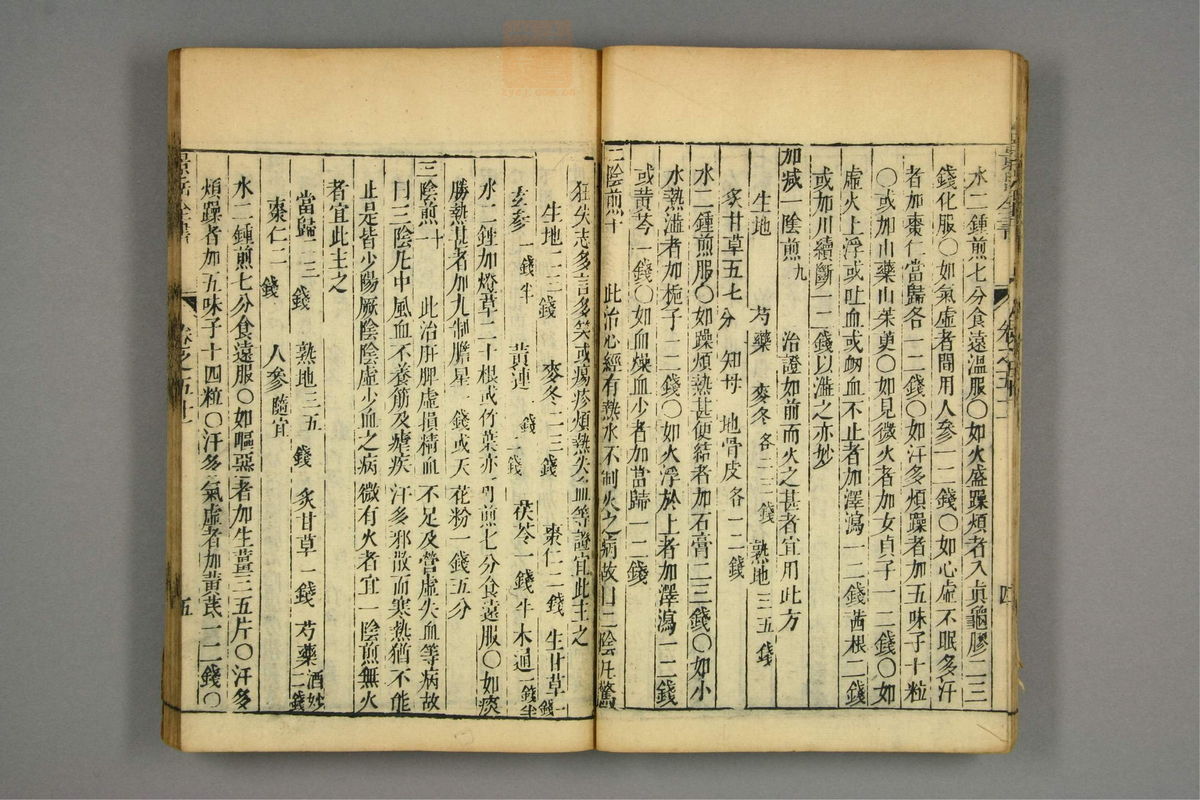 水二鍾煎七分食遠溫服〇如火盛躁煩者入真龜膠二三
錢化服〇如氣虛者間用人參一二錢〇如心虛不眠多汗
者加棗仁當歸各一二錢〇如汗多煩躁者加五味子十粒
〇或加山藥山茱萸〇如見微火者加女貞子一二錢〇如
虛火上浮或吐血或衂血不止者加澤瀉一二錢茜根二錢
或加川續斷一二錢以澁之亦妙
加減一陰煎九　治證如前而火之甚者宜用此方
生地　芍藥　麥冬各二三錢　熟地三五錢
炙甘草五七分　知母　地骨皮各一二錢
水二鍾煎服〇如躁煩熱甚便結者加石膏二三錢〇如小
水熱澁者加梔子一二錢〇如火浮於上者加澤瀉一二錢
或黃芩一錢〇如血燥血少者加當歸一二錢
二陰煎十　此治心經有熱水不制火之病故曰二陰凡驚
狂失志多言多笑或瘍疹煩熱失血等證宜此主之
生地二三錢　麥冬二三錢　棗仁二錢　生甘草一錢
玄參一錢半　黃連　錢　茯苓一錢半　木通一錢半
水二鍾加燈草二十根或竹葉亦可煎七分食遠服〇如痰
勝熱甚者加九制膽星一錢或天花粉一錢五分
三陰煎十一　此治肝脾虛損精血不足及營虛失血等病故
曰三陰凡中風血不養筋及瘧疾汗多邪散而寒熱猶不能
止是皆少陽厥陰陰虛少血之病微有火者宜一陰煎無火
者宜此主之
當歸二三錢　熟地三五錢　炙甘草一錢　芍藥酒炒二錢
棗仁二錢　人參隨宜
水二鍾煎七分食遠服〇如嘔惡者加生薑三五片〇汗多
煩躁者加五味子十四粒〇汗多氣虛者加黃芪一二錢〇
景岳全書　卷之五十一　五